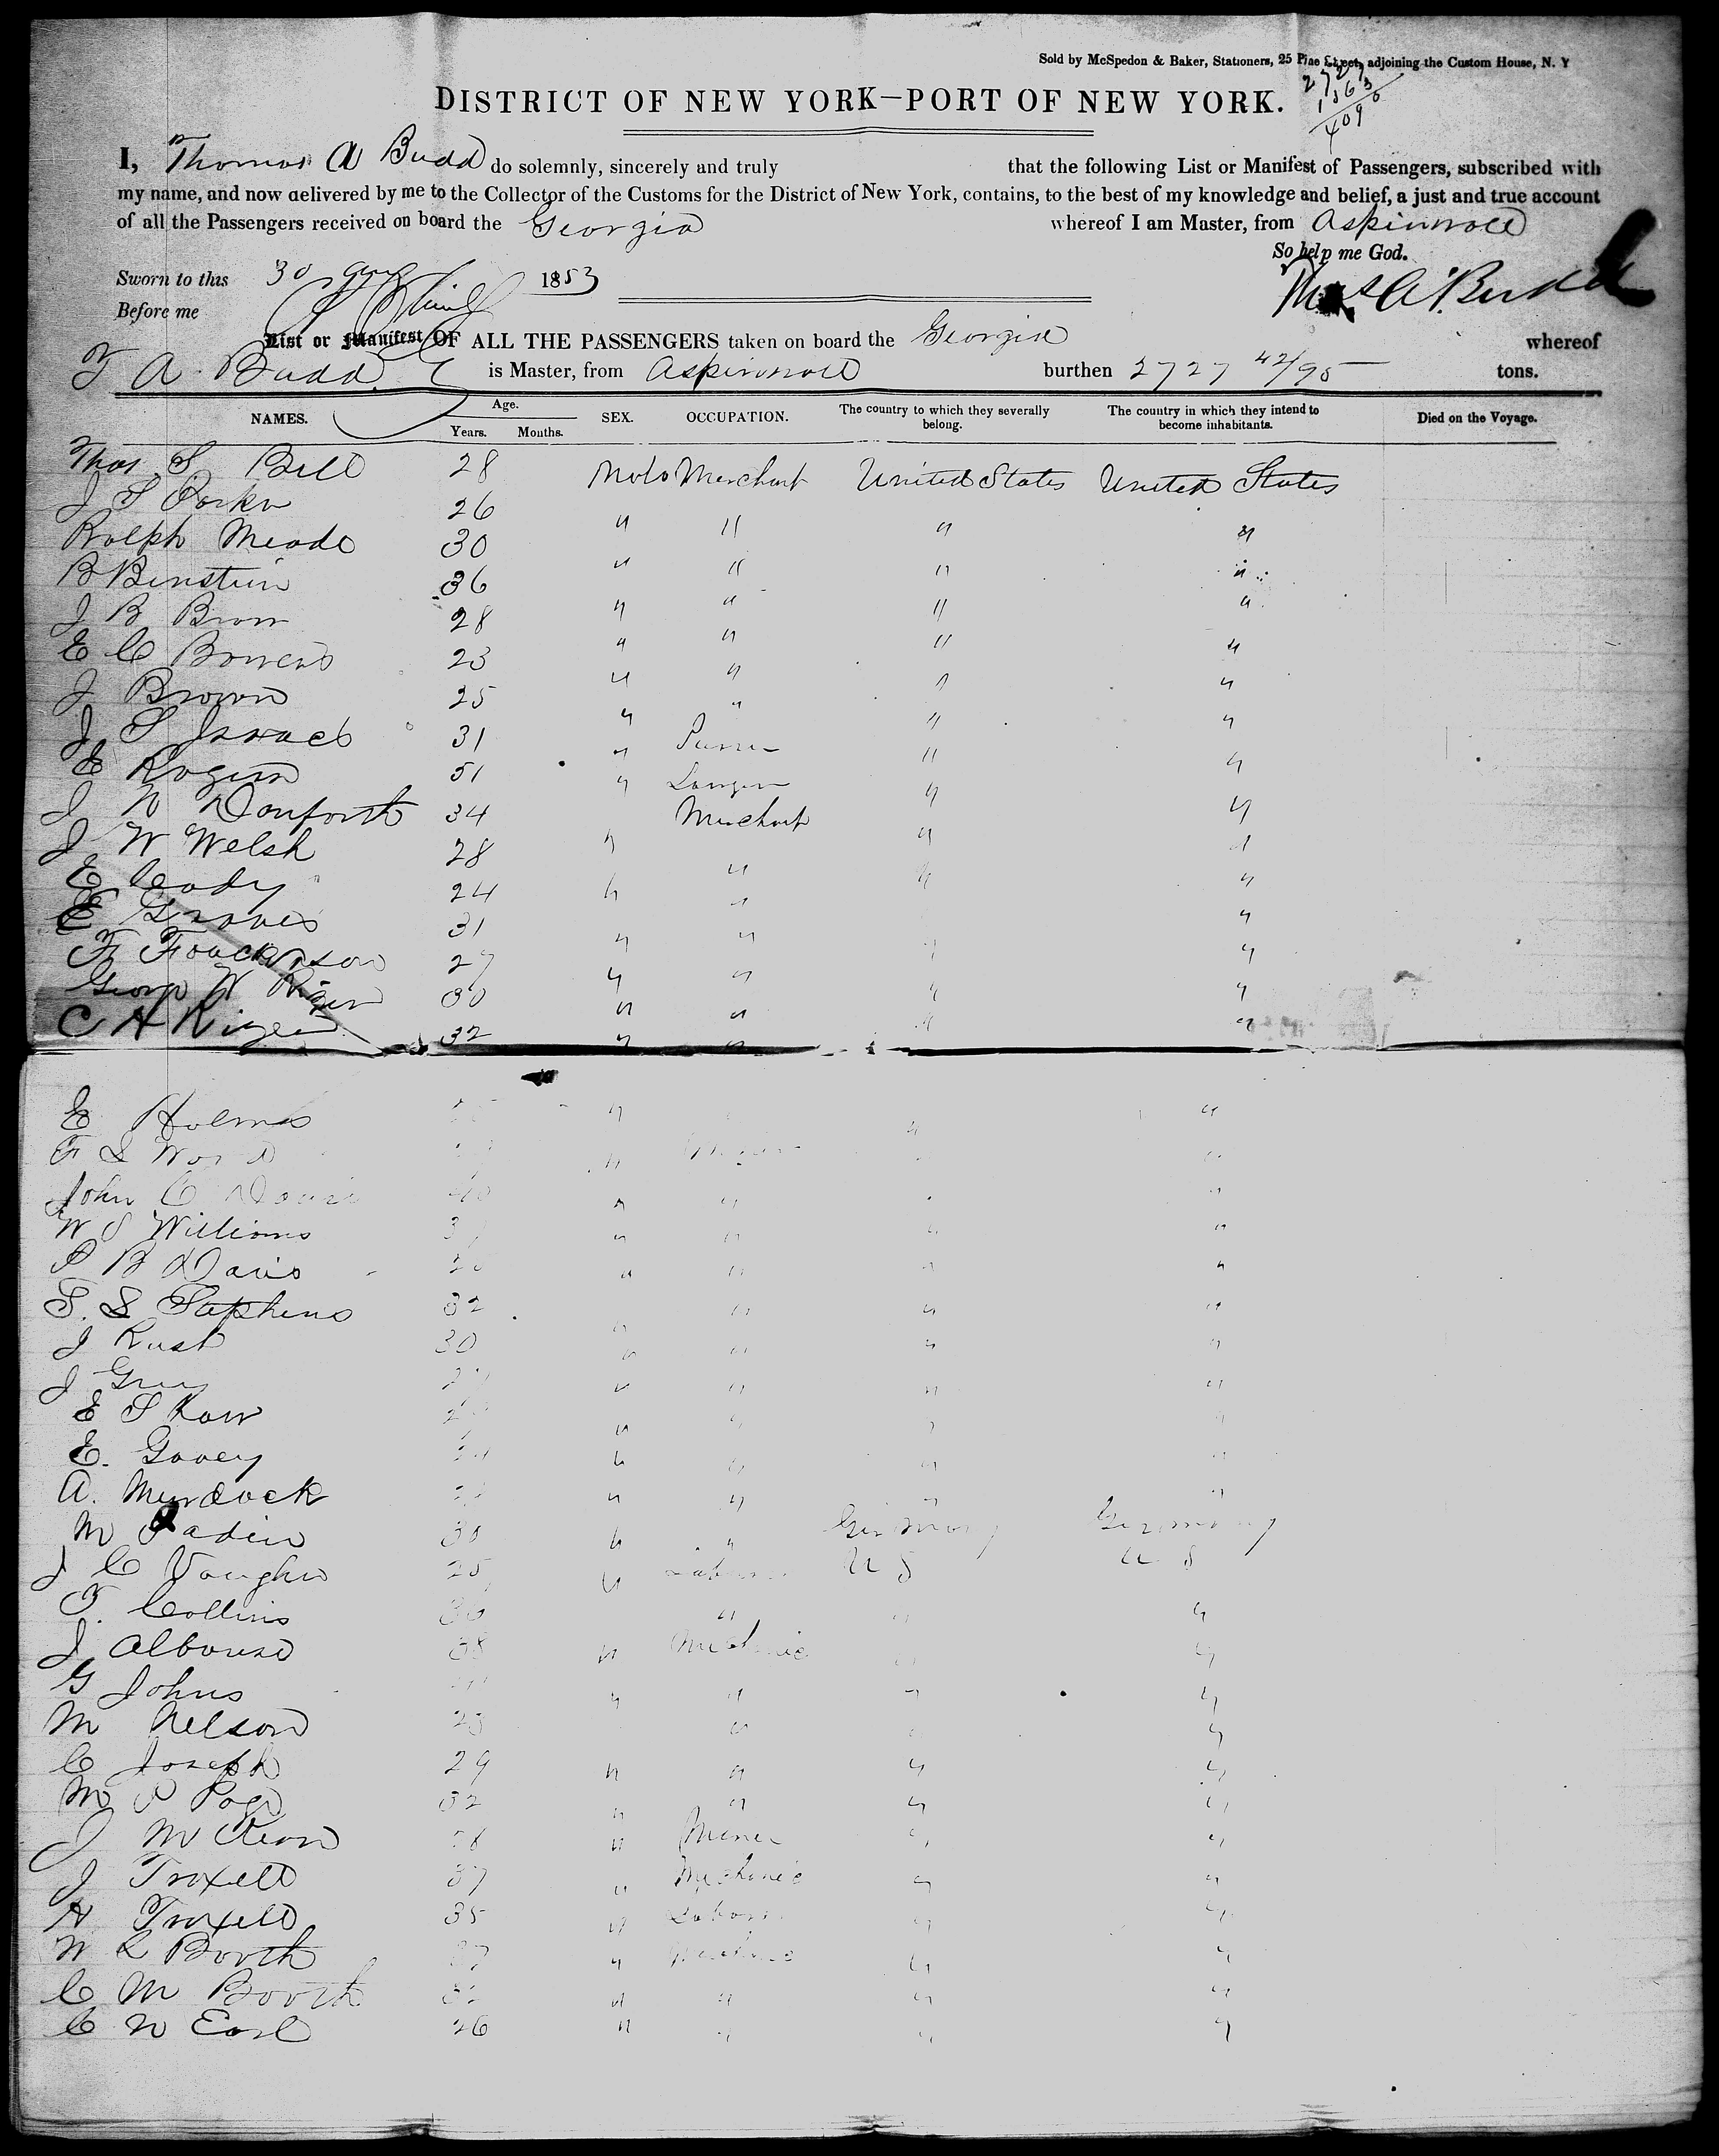 Sold by McSpedon & Baker, Stationers, 25 Pine Street, adjoining the Custom House, N. Y
2727
1363
4090
DISTRICT OF NEW YORK—PORT OF NEW YORK.
I, Thomas A Budd do solemnly, sincerely and truly that the following List or Manifest of Passengers, subscribed with
my name, and now delivered by me to the Collector of the Customs for the District of New York, contains, to the best of my knowledge and belief, a just and true account
of all the Passengers received on board the Georgia whereof I am Master, from Aspinwall
So help me God.
Sworn to this 30 1853
Thos A. Budd
Before me
List or Manifest OF ALL THE PASSENGERS taken on board the Georgia whereof
T A Budd is Master, from Aspinwall burthen 2727 42/95 tons.
NAMES. Age. Years. Months. SEX. OCCUPATION. The country to which they severally belong. The country in which they intend to become inhabitants. Died on the Voyage.
Thos S Bell 28 Male Merchant United States United States
J S Parker 26 " " " "
Ralph Meade 30 " " " "
B Binstein 36 " " " "
J B Brown 28 " " " "
E C Bowers 23 " " " "
J Brown 25 " " " "
J S Israels 31 " " "
E Rogers 51 " " "
J N Danforth 34 Merchant " "
J W Welsh 28 " " " "
E Cady 24 " " "
E Graves 31 " " "
F 27 " " "
George W 30 " " " "
C H 32 " " "
E Holmes " " "
F S Ward " "
John C Davis 40 " " "
W S Williams " " " "
P B Davis " " " "
S. S Stephens 32 " " " "
J Rust 30 " " " "
J Grey " " " "
E S Kaw " " " "
E. Govey " " " "
A. Murdock " " " "
M 30 " " Germany Germany
J C Vaughn 25 " Laborer U S U S
T. Collins 30 " " "
J Albouse 38 " Mechanic " "
G Johns " " " "
M Nelson 23 " "
C Joseph 29 " " " "
M P Page 32 " " " "
J McKeon " Miner " "
J Troxell 37 " Mechanic " "
H Troxell 35 " Laborer " "
W L Booth " Mechanic " "
C M Booth " " " "
C N Earl 26 " " " "